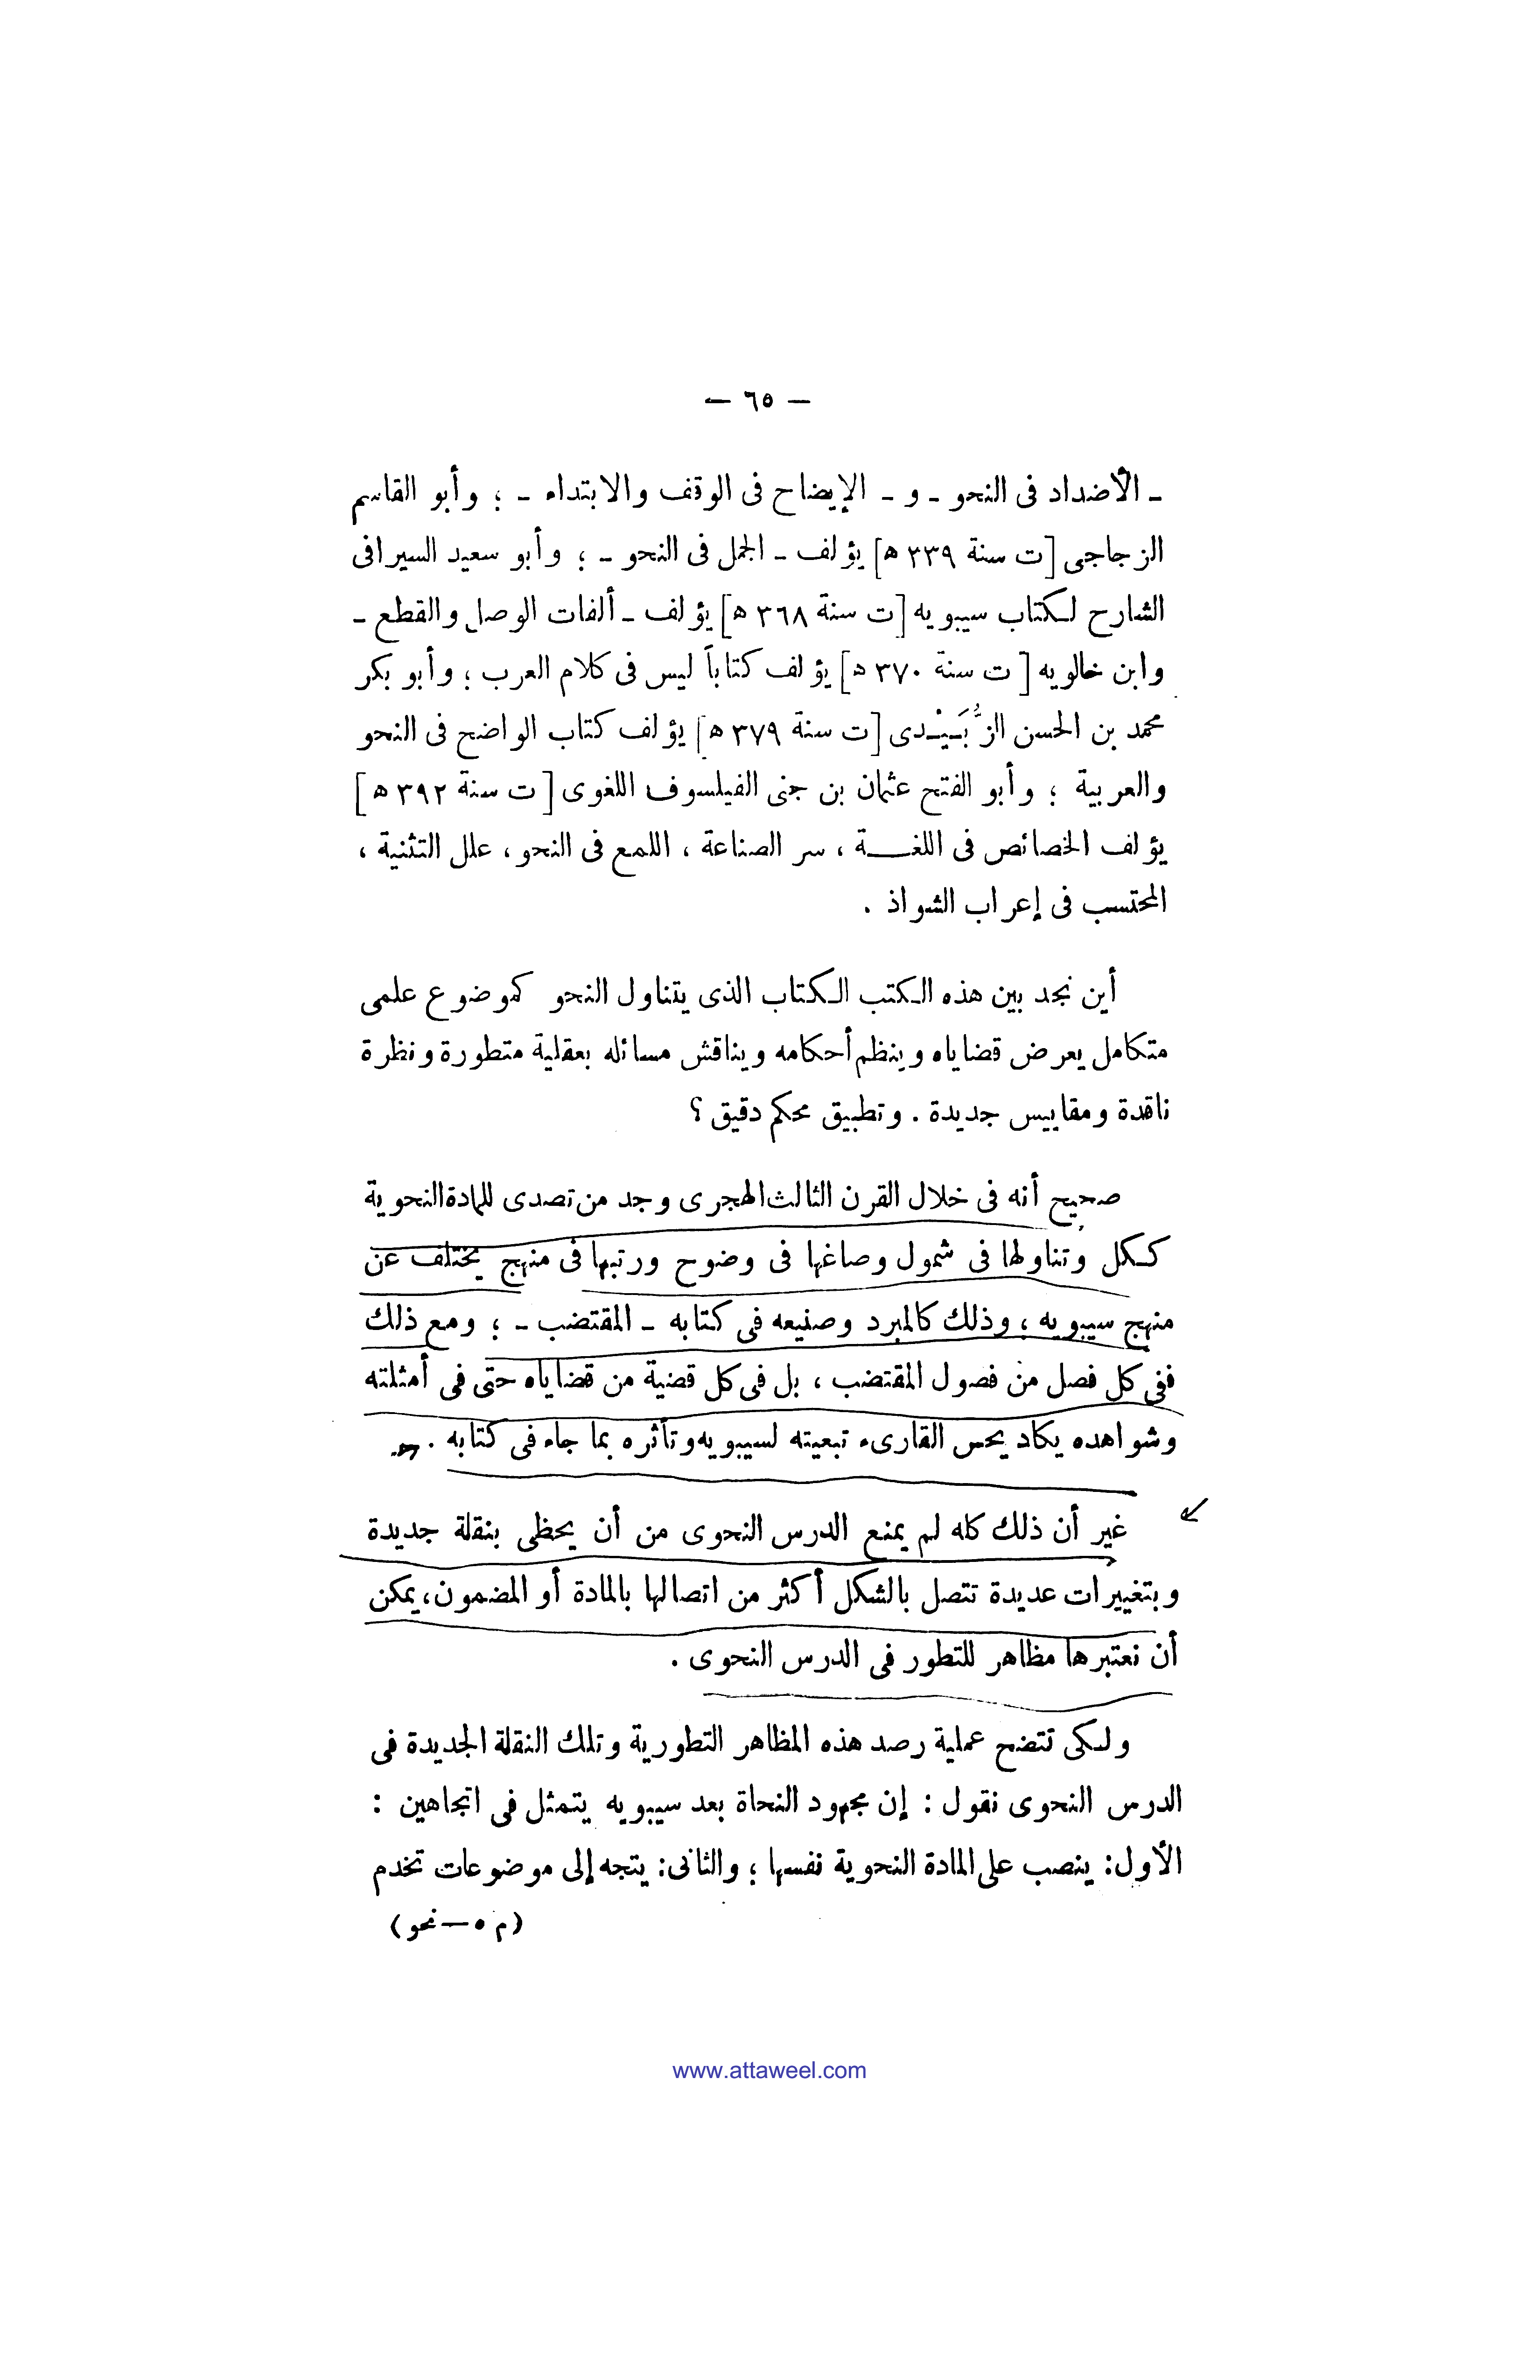 — ٦٥ —
ـ الأضداد فى النحو ـ و ـ الإيضاح فى الوقف والابتداء ـ ؛ وأبو القاسم
الزجاجى [ت سنة ٣٣٩ ه] يؤلف ـ الجمل فى النحو ـ ؛ وأبو سعيد السيرافى
الشارح لكتاب سيبويه [ت سنة ٣٦٨ ه] يؤلف ـ ألفات الوصل والقطع ـ
وابن خالويه [ ت سنة ٣٧٠ ه] يؤلف كتاباً ليس فى كلام العرب ؛ وأبو بكر
محمد بن الحسن الزُّبَيْدى [ت سنة ٣٧٩ ه] يؤلف كتاب الواضح فى النحو
والعربية ؛ وأبو الفتح عثمان بن جنى الفيلسوف اللغوى [ ت سنة ٣٩٢ ه ]
يؤلف الخصائص فى اللغــة ، سر الصناعة ، اللمع فى النحو ، علل التثنية ،
المحتسب فى إعراب الشواذ .
أين نجد بين هذه الكتب الكتاب الذى يتناول النحو كموضوع علمى
متكامل يعرض قضاياه وينظم أحكامه ويناقش مسائله بعقلية متطورة ونظرة
ناقدة ومقاييس جديدة . وتطبيق محكم دقيق ؟
صحيح أنه فى خلال القرن الثالث الهجرى وجد من تصدى للمادة النحوية
ككل وتناولها فى شمول وصاغها فى وضوح ورتبها فى منهج يختلف عن
منهج سيبويه ، وذلك كالمبرد وصنيعه فى كتابه ـ المقتضب ـ ؛ ومع ذلك
ففى كل فصل من فصول المقتضب ، بل فى كل قضية من قضاياه حتى فى أمثلته
وشواهده يكاد يحس القارىء تبعيته لسيبويه وتأثره بما جاء فى كتابه .
غير أن ذلك كله لم يمنع الدرس النحوى من أن يحظى بنقلة جديدة
وبتغييرات عديدة تتصل بالشكل أكثر من اتصالها بالمادة أو المضمون، يمكن
أن نعتبرها مظاهر للتطور فى الدرس النحوى .
ولكى تتضح عملية رصد هذه المظاهر التطورية وتلك النقلة الجديدة فى
الدرس النحوى نقول : إن مجهود النحاة بعد سيبويه يتمثل فى اتجاهين :
الأول: ينصب على المادة النحوية نفسها ؛ والثانى: يتجه إلى موضوعات تخدم
(م ٥ — نحو)
www.attaweel.com